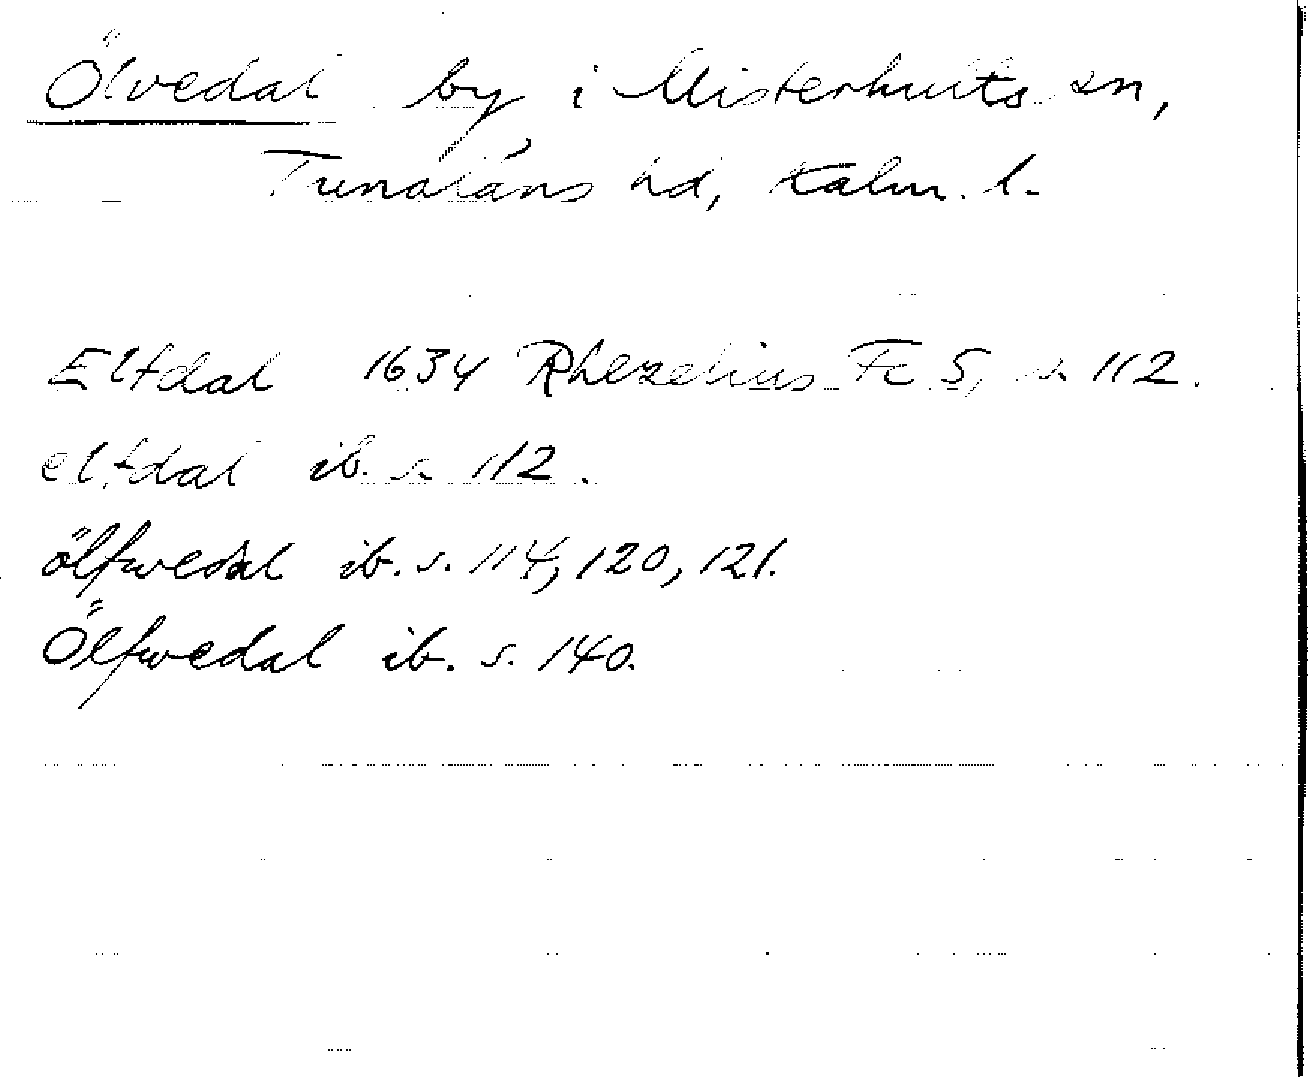 Ölvedal by i Misterhults sn,
Tunaläns hd, Kalm. l.
Elfdal 1634 Rhezelius Fc 5, s. 112.
elfdal ib. s. 112.
ölfwedal ib. s. 114, 120, 121.
Ölfwedal ib. s. 140.